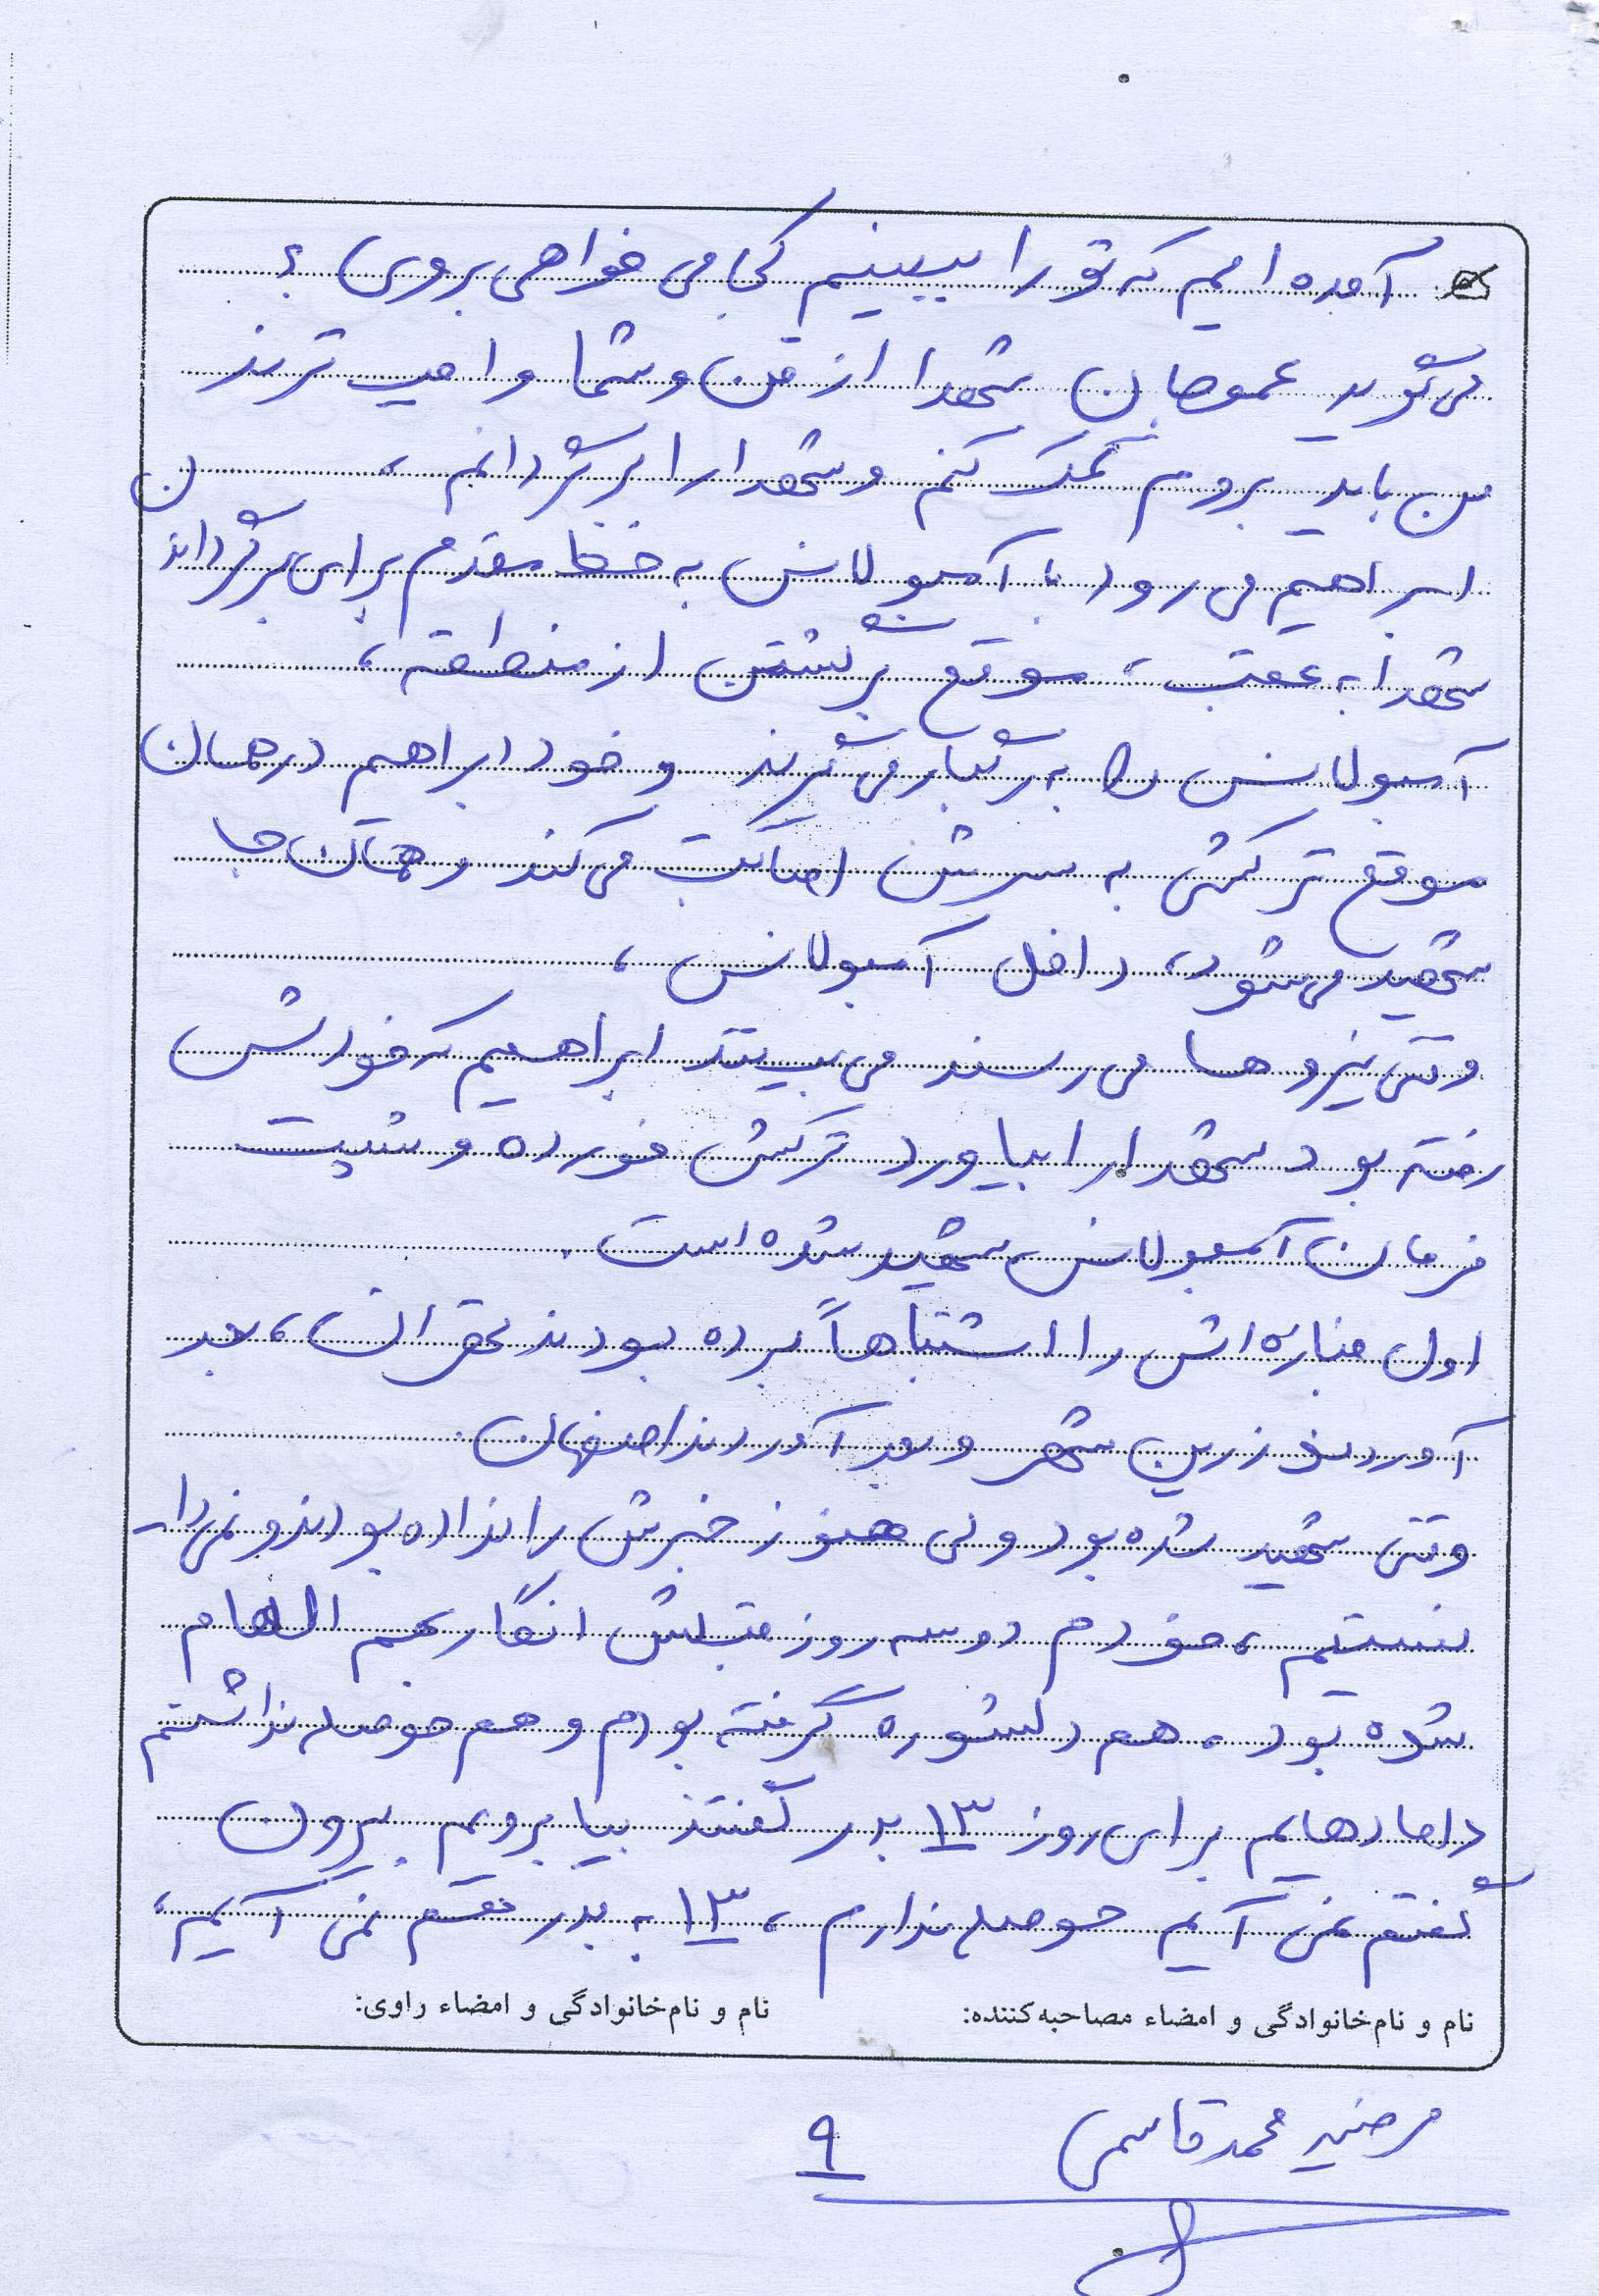 آمده ایم که تو را ببینیم کجا می خواهی بروی ؟
می گوید عموجان شهدا از من و شما واجب ترند
من باید بروم کمک کنم و شهدا را برگردانم ،
ابراهیم می رود با آمبولانس به خط مقدم برای برگرداندن
شهدا به عقب ، موقع برگشتن از منطقه ،
آمبولانس را به رگبار می گیرند و خود ابراهیم در همان
موقع ترکش به سرش اصابت می کند و همان جا
شهید می شود ، داخل آمبولانس ،
وقتی نیروها می رسند می بینند ابراهیم که خودش
رفته بود شهدا را بیاورد ترکش خورده و پشت
فرمان آمبولانس شهید شده است .
اول جنازه اش را اشتباهاً برده بودند تهران ، بعد
آوردند زرین شهر و بعد آوردند اصفهان .
وقتی شهید شده بود ولی هنوز خبرش را نداده بودند و نمی دا-
نستیم ، خودم دو سه روز قبلش انگار بهم الهام
شده بود ، هم دلشوره گرفته بودم و هم حوصله نداشتم
دامادهایم برای روز ۱۳ بدر گفتند بیا برویم بیرون
گفتم نمی آیم حوصله ندارم ، ۱۳ به بدر هم نمی آیم ،
نام و نام‌خانوادگی و امضاء مصاحبه‌کننده:
نام و نام‌خانوادگی و امضاء راوی:
مرضیه محمدقاسمی
۹